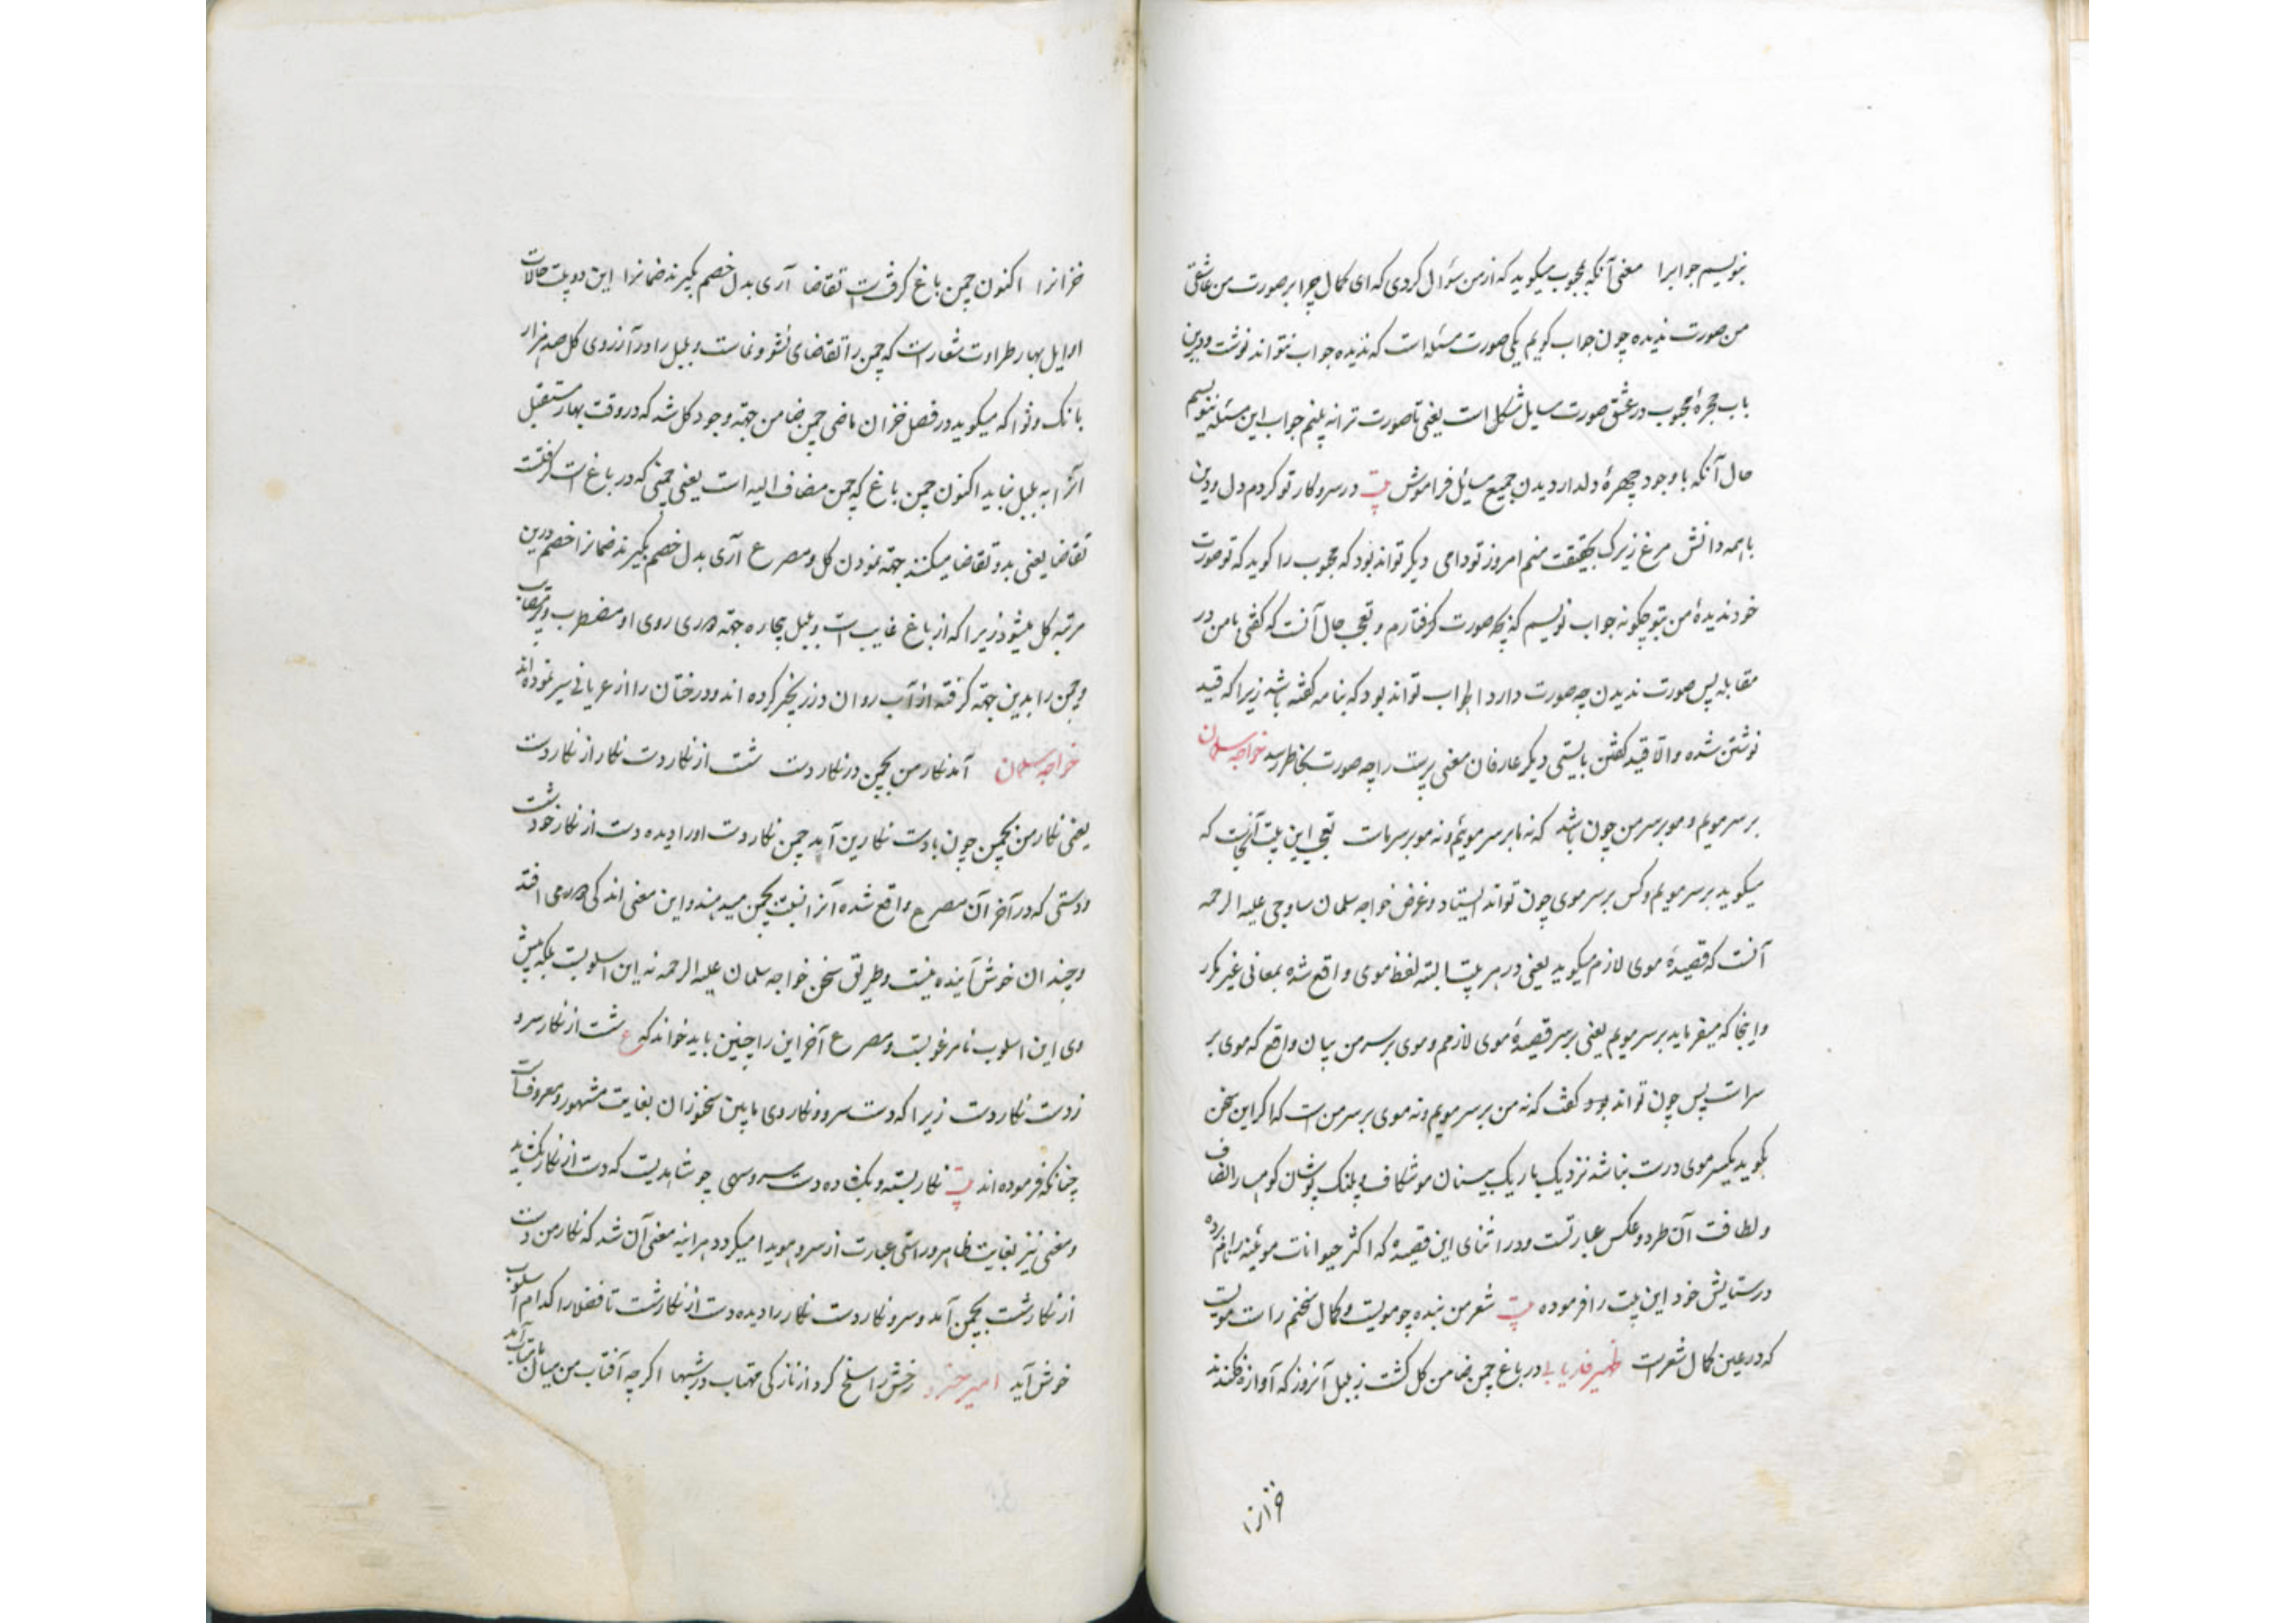 ننویسیم جوابرا معنی آنکه محبوب میکوید که از من سؤال کردی که ای کمال چرا بر صورت من عاشقی
من صورت ندیده چون جواب کویم یکی صورت مسئله است که ندیده جواب نتواند نوشت ودرین
باب حجرهٔ محبوب در عشق صورت مسایل مشکل است یعنی تا صورت ترا نه بینم جواب این مسئله ننویسم
حال آنکه با وجود چهرهٔ دلدار دیدن جمیع مسایل فراموش بیت در سر و کار تو کردم دل و دین
با همه دانش مرغ زیرک بحقیقت منم امروز تو دامی دیکر تواند بود که محبوب را کوید که تو صورت
خود ندیدهٔ من بتو چکونه جواب نویسم که بچه صورت کرفتارم و تعجب حال آنست که کفتی با من در
مقابله پس صورت ندیدن چه صورت دارد اطراب تواند بود که بنامه کفته باشد زیرا که قید
نوشتن شده والا قید کفتن بایستی دیکر عارفان معنی پرست را چه صورت بخاطر رسد خواجه سلمان
بر سر مویم و مو بر سر من چون باشد که نه ما بر سر موئیم و نه مو بر سر ماست تعجب این بیت آنست که
میکوید بر سر مویم و کس بر سر موی چون تواند ایستاد و غرض خواجه سلمان ساوجی علیه الرحمه
آنست که قصیدهٔ موی لازم میکوید یعنی در هر بیت البته لفظ موی واقع شده بمعانی غیر مکرر
واینجا که میفرماید بر سر مویم یعنی بر سر قصیدهٔ موی لازمم و موی بر سر من بیان واقع که موی بر
سر است پس چون تواند بود و کفت که نه من بر سر مویم و نه موی بر سر من است که اکر این سخن
بکوید یکسر موی درست نباشد نزدیک باریک بینان موشکاف و پلنک پوشان کوهسار الطاف
ولطافت آن طرد وعکس عبارتست و در اثنای این قصیده که اکثر حیوانات موئینه را نام برده
در ستایش خود این بیت را فرموده بیت شعر من بنده چو مویست و کمال سخنم راست مویست
که در عین کمال شعر است ظهیر فاریابی در باغ چمن ضامن کل کشت ز بلبل آنروز که آوازه فکندند
خزانرا
خزانرا اکنون چمن باغ کرفتست تقاضا آری بدل خصم بکیرند ضمانرا این دو بیت حالات
اوایل بهار طراوت شعار است که چمن را تقاضای نشو و نماست و بلبل را در آرزوی کل صد هزار
بانک و نوا که میکوید در فصل خزان ماضی چمن ضامن جهة وجود کل شد که در وقت بهار مستقبل
آنرا به بلبل نماید اکنون چمن باغ که چمن مضاف الیه است یعنی چمنی که در باغ است کرفتست
تقاضا یعنی بدو تقاضا میکنند جهة نمودن کل و مصرع آری بدل خصم بکیرند ضمانرا خصم درین
مرتبه کل میشود زیرا که از باغ غایب است و بلبل بیچاره جهة دوری روی او مضطرب و
و چمن را بدین جهة کرفته از آب روان در زنجیر کرده اند و درختان را از عریانی سیر نموده اند
خواجه سلمان آمد نکار من بچمن در نکار دست شست از نکار دست نکار از نکار دست
یعنی نکار من بچمن چون با دست نکارین آمد چمن نکار دست او را دیده دست از نکار خود شست
و دستی که در آخر آن مصرع واقع شده آنرا نسبت بچمن میدهند و این معنی اندکی دور می افتد
و چندان خوش آینده نیست و طریق سخن خواجه سلمان علیه الرحمه نه این اسلوبست بلکه پیش
وی این اسلوب نامرغوبست و مصرع آخر این را چنین باید خواند که ع شست از نکار سرو
ز دست نکار دست زیرا که دست سرو و نکار وی مابین سخنوران بغایت مشهور و معروفست
چنانکه فرموده اند بیت نکار بسته و بکشاده دست سرو سهی چو شاهدیست که دست از نکار بکشاید
و معنی نیز بغایت ظاهر و راستی عبارت از سرو هویدا میکردد هر آینه معنی آن شد که نکار من دست
از نکار شست بچمن آمد و سرو نکار دست نکار را دیده دست از نکار شست تا فضلا را کدام اسلوب
خوش آید امیر خسرو رخش را سلخ کرد از نازکی مهتاب در شبها اکرچه آفتاب من میان آمد